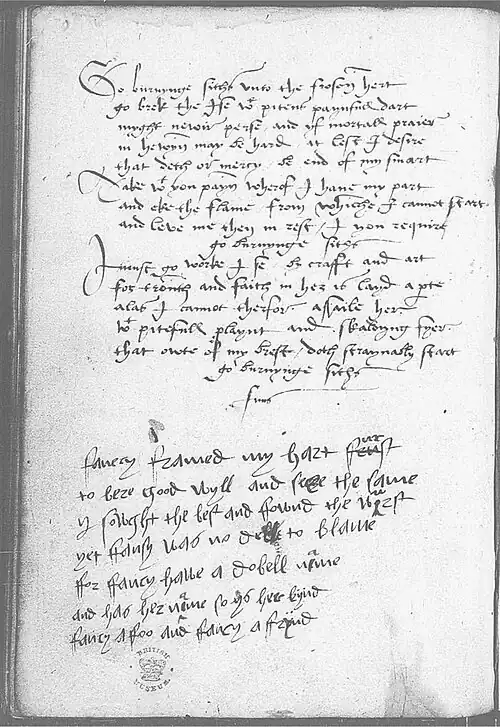 Go burnynge sithes vnto the frosen hert
go brek the Ise wt pites paynfull dart
myght neuer perse and yf mortall praier
in hevyn may be hard at lest I desire
that deth or mercy be end of my smart
Take wt you payn wherof I haue my part
and eke the flame from whiche I cannot start
and leve me then in rest I you require
go burnynge sithes
I must go worke I se by craft and art
for trouth and faith in her is layd apte
alas I cannot therfor assaile her
wt pitefull playnt and skaldyng fyer
that owte of my brest doth straynably start
go burnynge sithes
fins
fancy framed my hart furst
to bere good wyll and seke the same
y sowght the best and fownd the worst
yet ffansy was no to blame
ffor ffancy hawe a dobell name
and has her name so ys her kynd
fancy a foo and fancy a frynd
BRITISH
MUSEUM